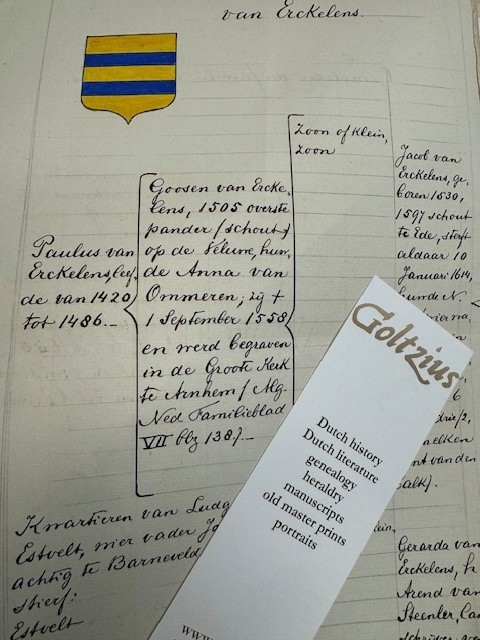 van Erckelens.
Paulus van
Erckelens, leef
de van 1420
tot 1486.-
Goosen van Ercke-
lens, 1505 overste
pander (schout)
op de Veluwe, huw
de Anna van
Ommeren; zij †
1 September 1558
en werd begraven
in de Groote Kerk
te Arnhem (Alg.
Ned Familieblad
VII blz 138).-
Zoon of Klein,
zoon
Jacob van
Erckelens, ge,
boren 1530,
1597 schout
te Ede, sterft
aldaar 10
Januari 1614,
huwde N.
6
ant van den
Kwartieren van
Estvelt, wier vader
achtig te Barneveld
stierf:
Estvelt
Gerarda van
Erckelens, hr
Arend van
Steenler,
Goltzius
Dutch history
Dutch literature
genealogy
heraldry
manuscripts
old master prints
portraits
www.